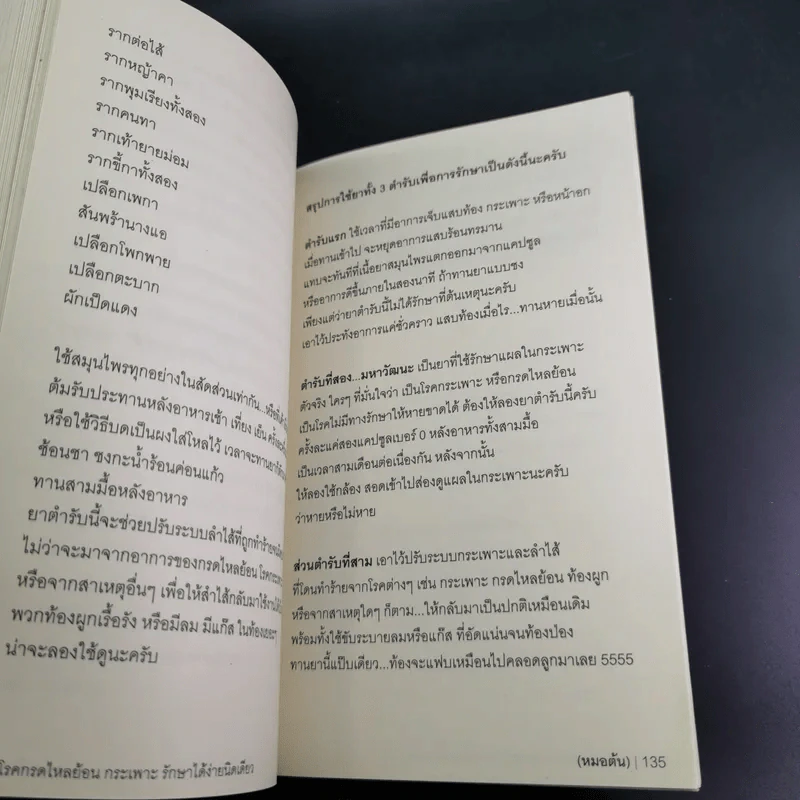 รากต่อไส้
รากหญ้าคา
รากพุมเรียงทั้งสอง
รากคนทา
รากเท้ายายม่อม
รากขี้กาทั้งสอง
เปลือกเพกา
สันพร้านางแอ
เปลือกโพกพาย
เปลือกตะบาก
ผักเป็ดแดง
ใช้สมุนไพรทุกอย่างในสัดส่วนเท่ากัน...หรือ
ต้มรับประทานหลังอาหารเช้า เที่ยง เย็น ครั้งละ
หรือใช้วิธีบดเป็นผงใส่โหลไว้ เวลาจะทานยาก็
ช้อนชา ชงกะน้ำร้อนค่อนแก้ว
ทานสามมื้อหลังอาหาร
ยาตำรับนี้จะช่วยปรับระบบลำไส้ที่ถูกทำร้าย
ไม่ว่าจะมาจากอาการของกรดไหลย้อน
หรือจากสาเหตุอื่นๆ เพื่อให้ลำไส้กลับมาใช้งาน
พวกท้องผูกเรื้อรัง หรือมีลม มีแก๊ส ในท้องเยอะๆ
น่าจะลองใช้ดูนะครับ
โรคกรดไหลย้อน กระเพาะ รักษาได้ง่ายนิดเดียว
สรุปการใช้ยาทั้ง 3 ตำรับเพื่อการรักษาเป็นดังนี้นะครับ
ตำรับแรก ใช้เวลาที่มีอาการเจ็บแสบท้อง กระเพาะ หรือหน้าอก
เมื่อทานเข้าไป จะหยุดอาการแสบร้อนทรมาน
แทบจะทันทีที่เนื้อยาสมุนไพรแตกออกมาจากแคปซูล
หรืออาการดีขึ้นภายในสองนาที ถ้าทานยาแบบชง
เพียงแต่ว่ายาตำรับนี้ไม่ได้รักษาที่ต้นเหตุนะครับ
เอาไว้ประทังอาการแค่ชั่วคราว แสบท้องเมื่อไร...ทานหายเมื่อนั้น
ตำรับที่สอง...มหาวัฒนะ เป็นยาที่ใช้รักษาแผลในกระเพาะ
ตัวจริง ใครๆ ที่มั่นใจว่า เป็นโรคกระเพาะ หรือกรดไหลย้อน
เป็นโรคไม่มีทางรักษาให้หายขาดได้ ต้องให้ลองยาตำรับนี้ครับ
ครั้งละแค่สองแคปซูลเบอร์ 0 หลังอาหารทั้งสามมื้อ
เป็นเวลาสามเดือนต่อเนื่องกัน หลังจากนั้น
ให้ลองใช้กล้อง สอดเข้าไปส่องดูแผลในกระเพาะนะครับ
ว่าหายหรือไม่หาย
ส่วนตำรับที่สาม เอาไว้ปรับระบบกระเพาะและลำไส้
ที่โดนทำร้ายจากโรคต่างๆ เช่น กระเพาะ กรดไหลย้อน ท้องผูก
หรือจากสาเหตุใดๆ ก็ตาม...ให้กลับมาเป็นปกติเหมือนเดิม
พร้อมทั้งใช้ขับระบายลมหรือแก๊ส ที่อัดแน่นจนท้องป่อง
ทานยานี้แป๊บเดียว...ท้องจะแฟบเหมือนไปคลอดลูกมาเลย 5555
(หมอต้น) | 135